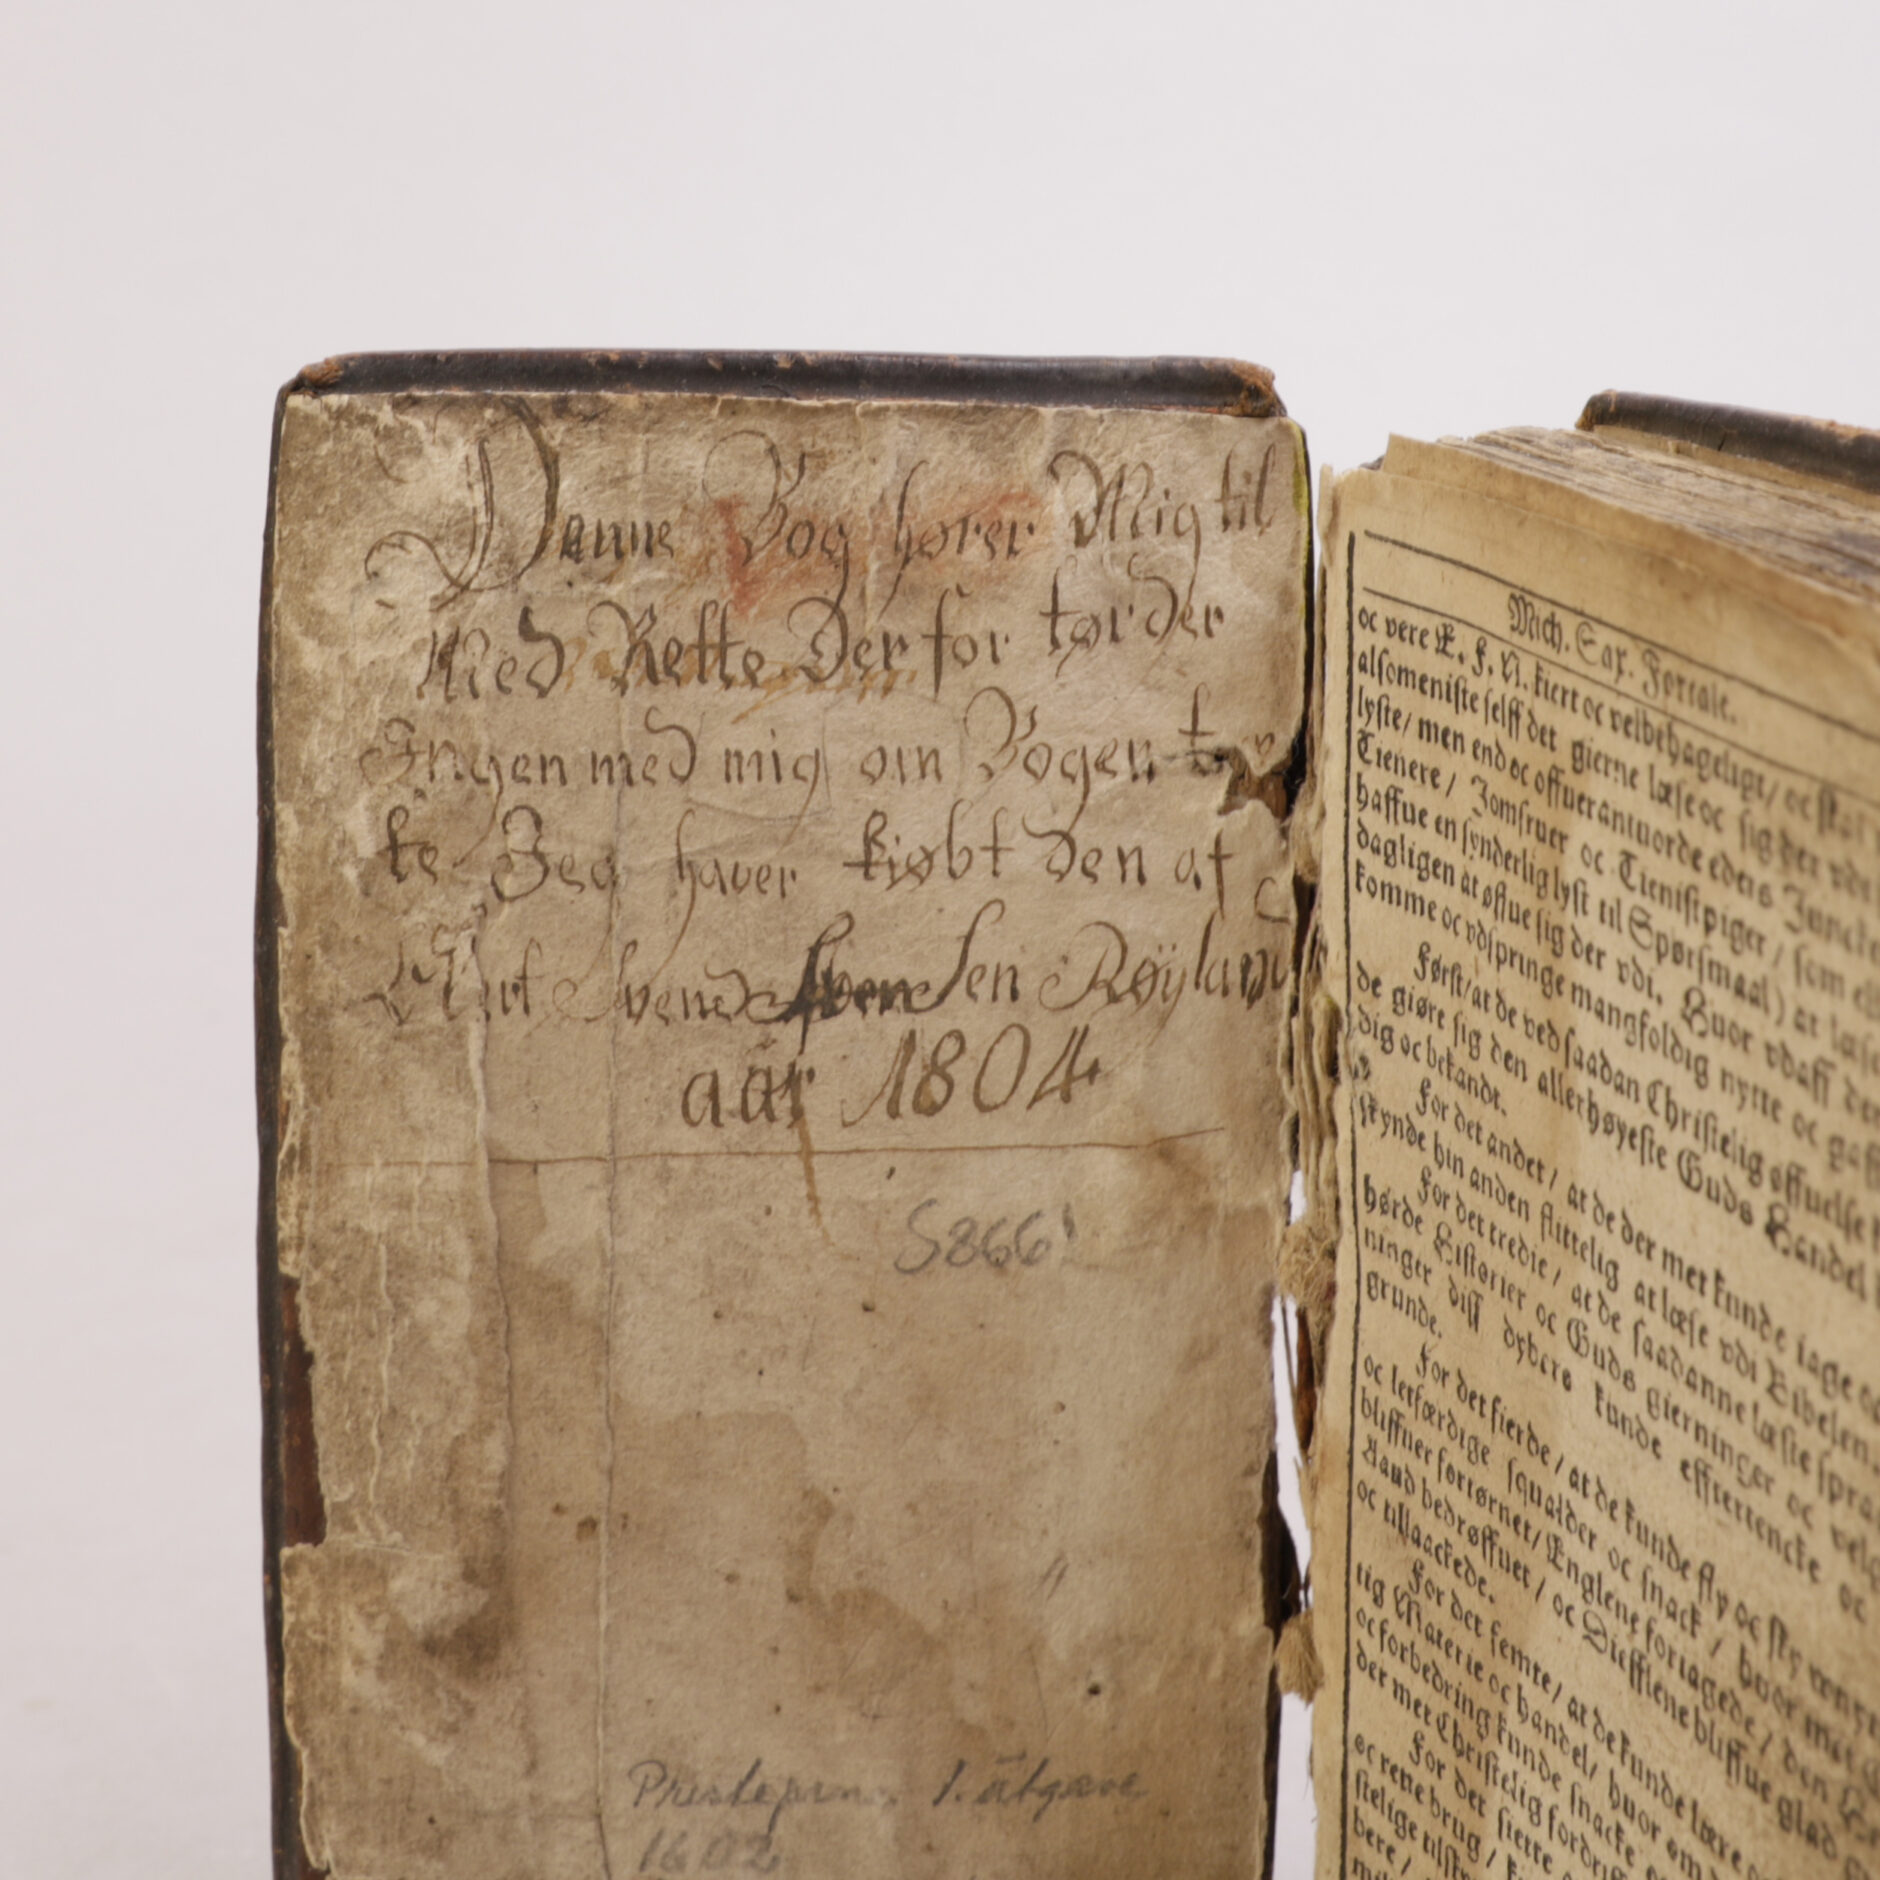 Denne Bog hører Mig til
Med Rette Der for tør der
Ingen med mig om Bogen
te Jeg haver kiøbt den af
Svend Svensen Røyland
aar 1804
S866
Presteperm 1. utgave
1602
Mich. Sax. Fortale.
oc vere E. F. N. kiert oc velbehageligt / oc skal
alsomeniste selff det gierne læse oc sig der vdi
lyste / men end oc offuerantuorde eders
Tienere / Jomfruer oc Tienistpiger / som
haffue en synderlig lyst til Spørsmaal) at læse
dagligen at øffue sig der vdi. Huor vdaff
komme oc vdspringe mangfoldig nytte oc
Først / at de ved saadan Christelig øffuelse
de giøre sig den allerhøyeste Guds Handel
dig oc bekandt.
For det andet / at de der met kunde iage
skynde hin anden flittelig at læse vdi Bibelen.
For det tredie / at de saadanne læste
hørde Historier oc Guds gierninger oc
ninger diss dybere kunde efftertencke oc
grunde.
For det fierde / at de kunde fly oc sky
oc letfærdige squalder oc snack / huor met
bliffuer fortørnet / Englene foriagede / den
Aand bedrøffuet / oc Diefflene bliffue glad
oc tillaackede.
For det femte / at de kunde lære
tig Materie oc handel / huor om
oc forbedring kunde snacke
der met Christelig fordriff
For det siette
oc rette brug /
stelige
bere /